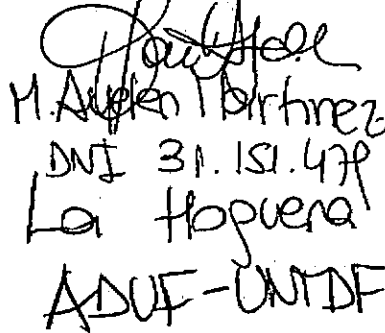 M. Ayelen Martinez
DNI 31.151.479
La Hoguera
ADUF-UNTDF